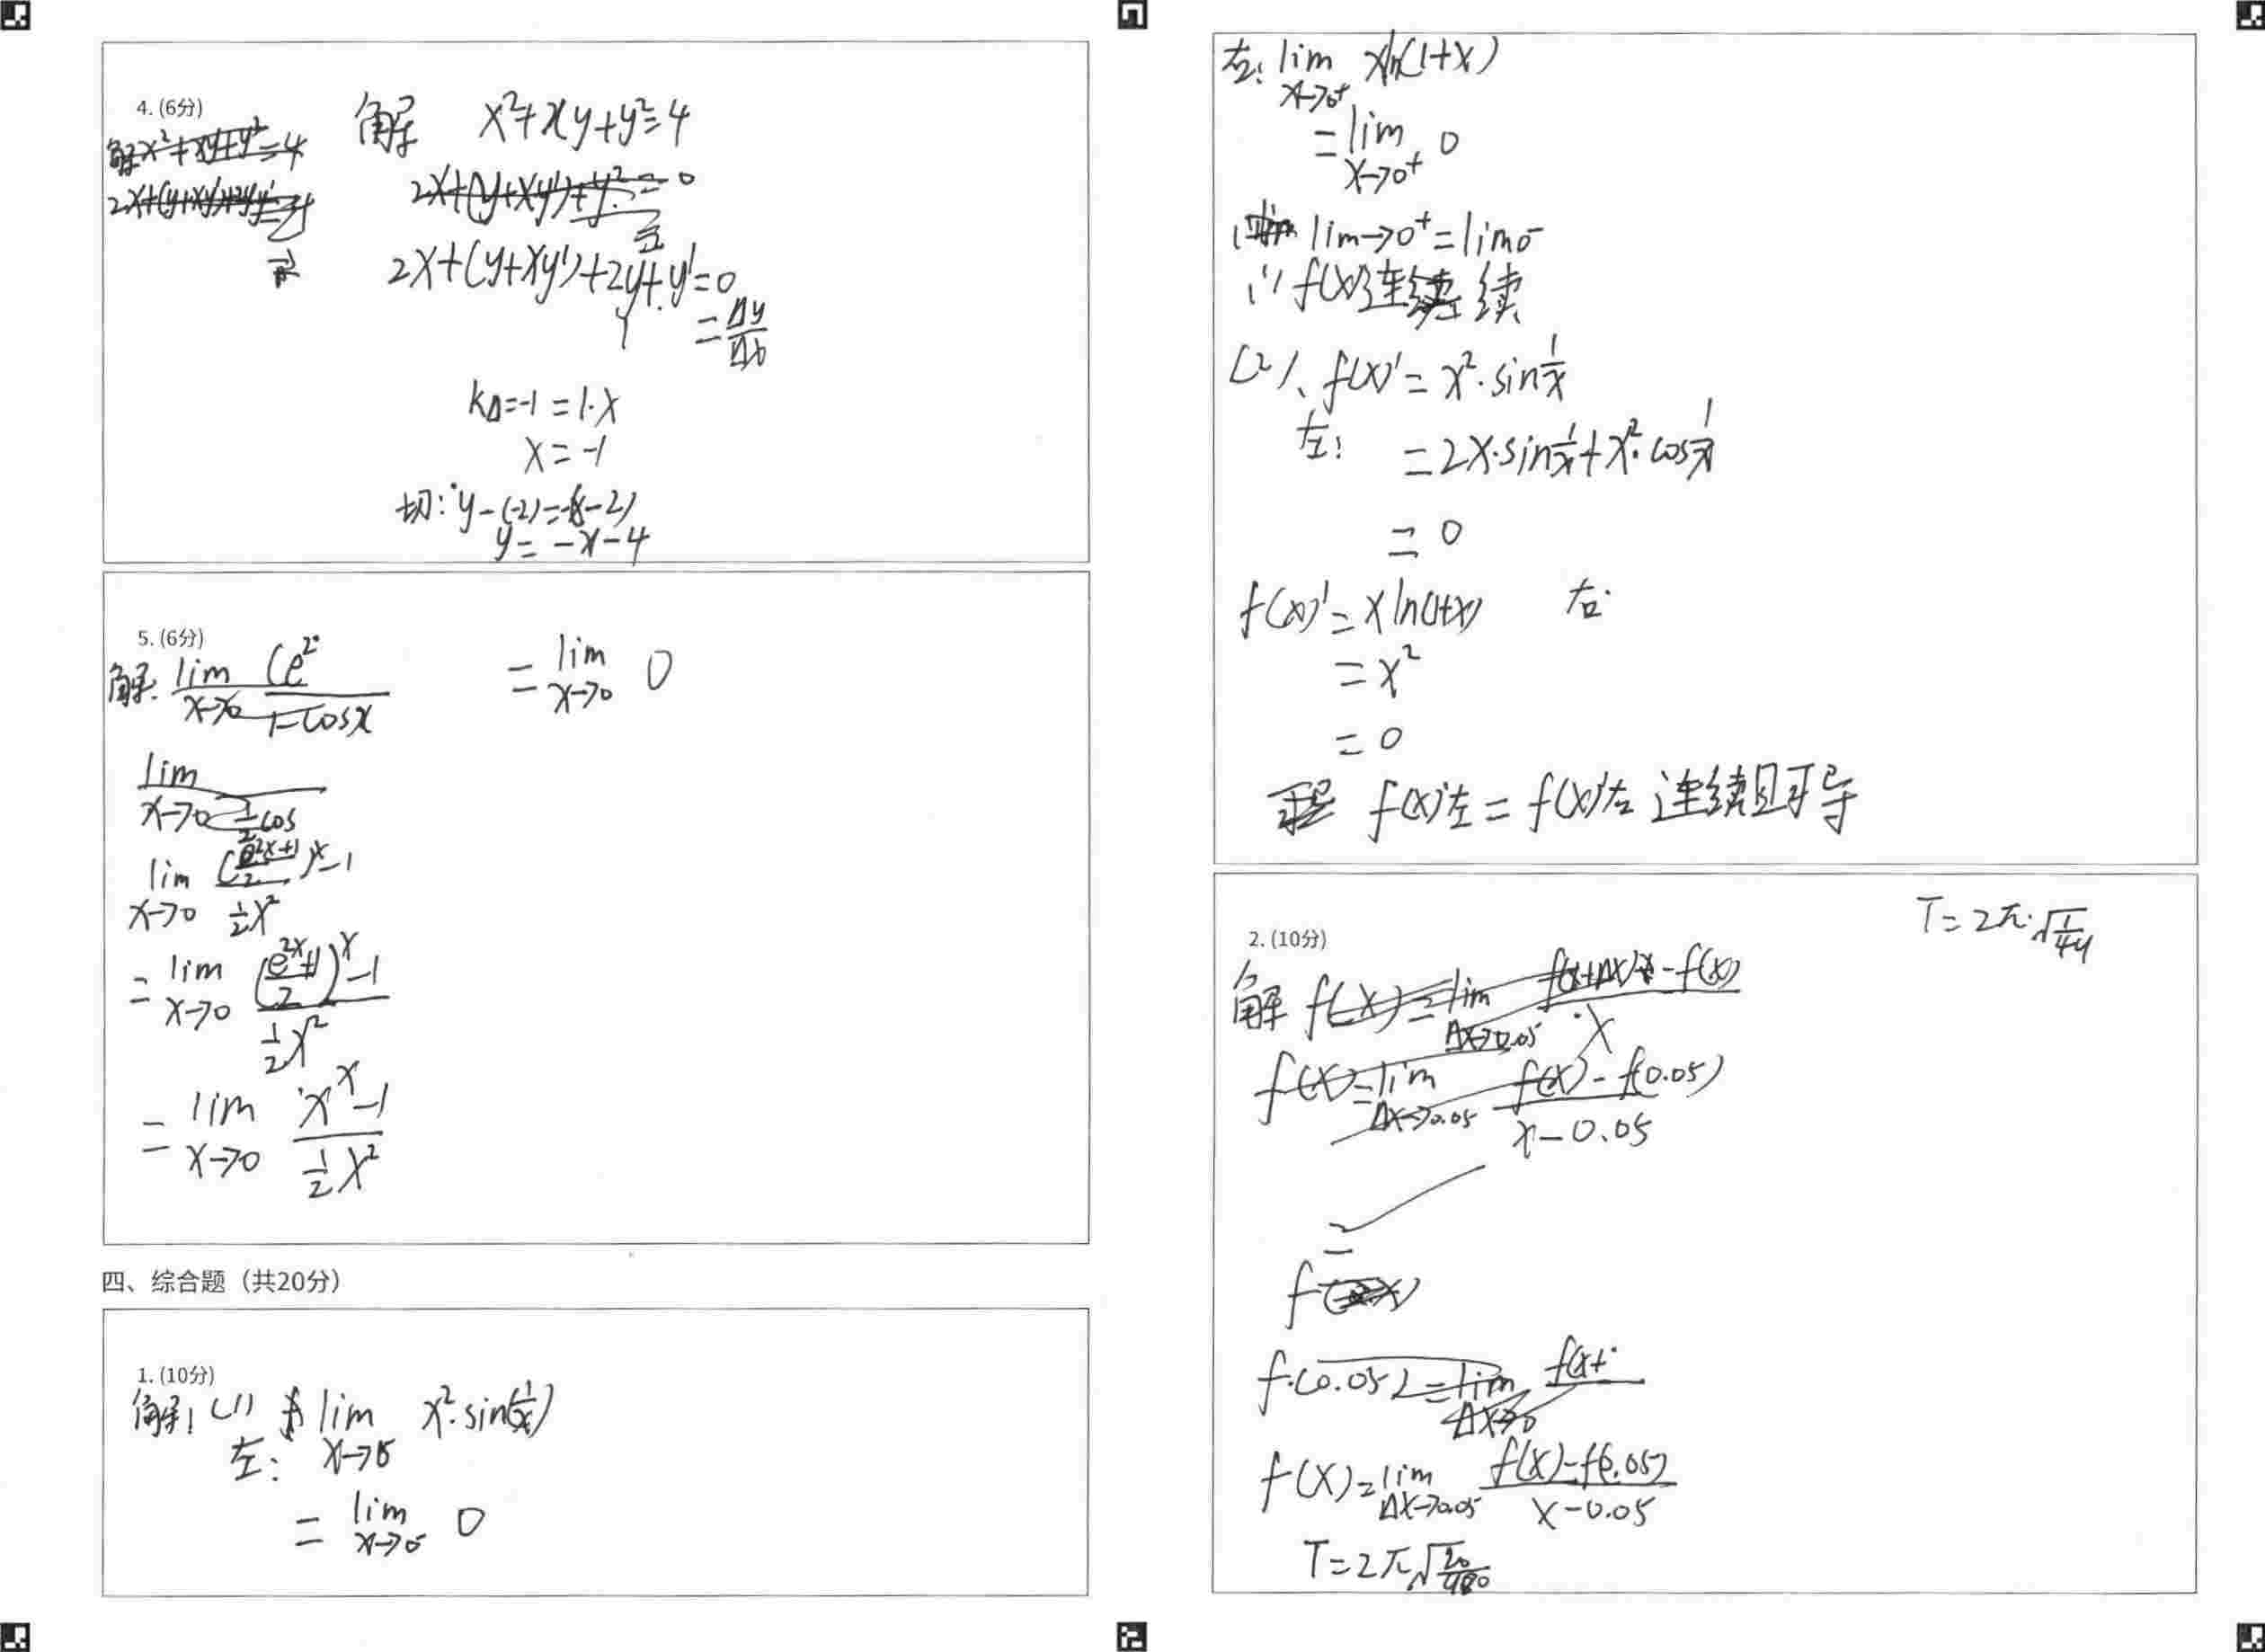 4. (6分)
解 x²+xy+y²=4
2x+(y+xy')+y²=0
2x+(y+xy')+2y+y'=0
=Δy/Δx
k=-1=1·x
x=-1
切: y-(-2)=-(x-2)
y=-x-4
5. (6分)
解: lim x→0 (e²
1-cosx
lim x→0 ½cos
lim x→0 ((e^2x+1)/2)^x-1 / ½x²
= lim x→0 ((e^2x+1)/2)^x-1 / ½x²
= lim x→0 x^x-1 / ½x²
= lim x→0 0
四、综合题（共20分）
1. (10分)
解: (1) lim x²·sin(1/x)
左: x→0⁻
= lim x→0⁻ 0
右: lim x→0⁺ xln(1+x)
= lim x→0⁺ 0
lim→0⁺=lim0⁻
∴ f(x)连续
(2)、f(x)'=x²·sin1/x
左: =2x·sin1/x+x²·cos1/x
=0
f(x)'=xln(1+x) 右
=x²
=0
f(x)'左=f(x)'右 连续且可导
2. (10分)
T=2π·√
解 f(x)=lim Δx→0.05 f(x+Δx)-f(x) / x
f(x)=lim Δx→0.05 f(x)-f(0.05) / x-0.05
=
f(
f(0.05)=lim Δx→0 f(x+
f(x)=lim Δx→0.05 f(x)-f(0.05) / x-0.05
T=2π√20/980